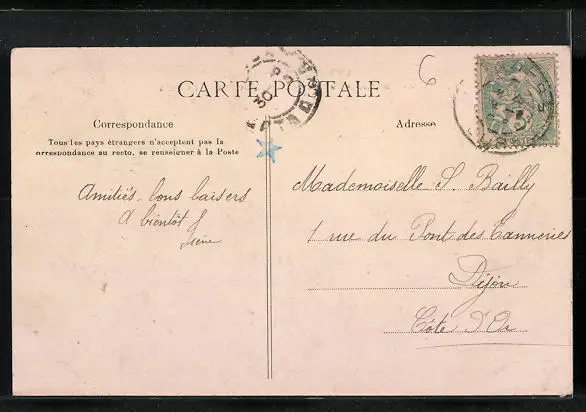 CARTE POSTALE
6
Correspondance
Adresse
Tous les pays étrangers n'acceptent pas la
correspondance au recto, se renseigner à la Poste
Amitiés. bons baisers
à bientôt
Mademoiselle S. Bailly
1 rue du Pont des Tanneries
Dijon
Côte d'Or